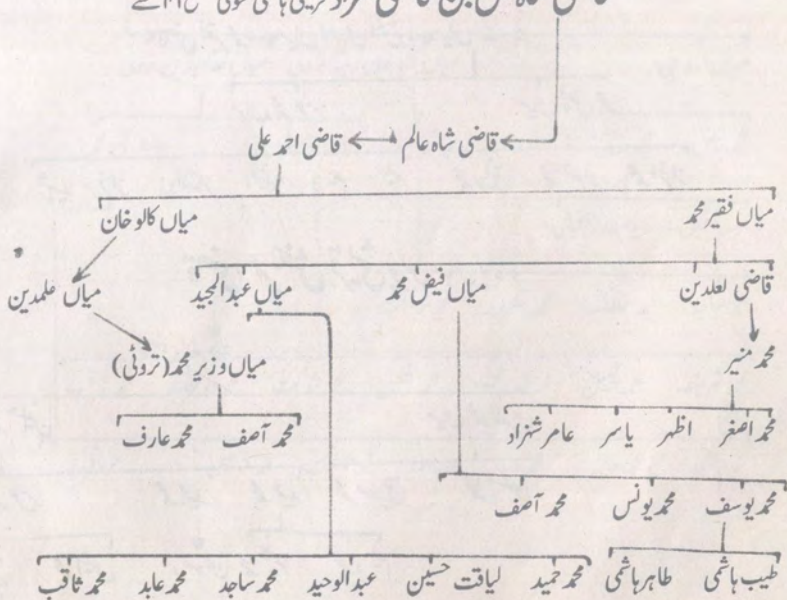 قاضی شاہ عالم قاضی احمد علی
میاں فقیر محمد میاں کالو خان
قاضی لعلدین میاں فیض محمد میاں عبدالمجید میاں علمدین
محمد منیر میاں وزیر محمد (تروٹی)
محمد اصغر اظہر یاسر عامر شہزاد محمد آصف محمد عارف
محمد یوسف محمد یونس محمد آصف
طیب ہاشمی طاہر ہاشمی محمد حمید لیاقت حسین عبدالوحید محمد ساجد محمد عابد محمد ثاقب